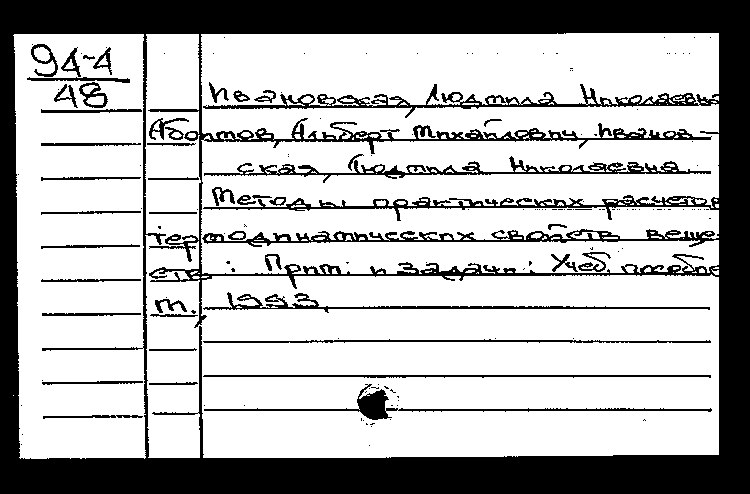 94-4
48
Ивановская, Людмила Николаевна
Абоимов, Альберт Михайлович, Иванов-
ская, Людмила Николаевна.
Методы практических расчетов
термодинамических свойств веще-
ств : Прим. и задачи : Учеб. пособие
М., 1993,